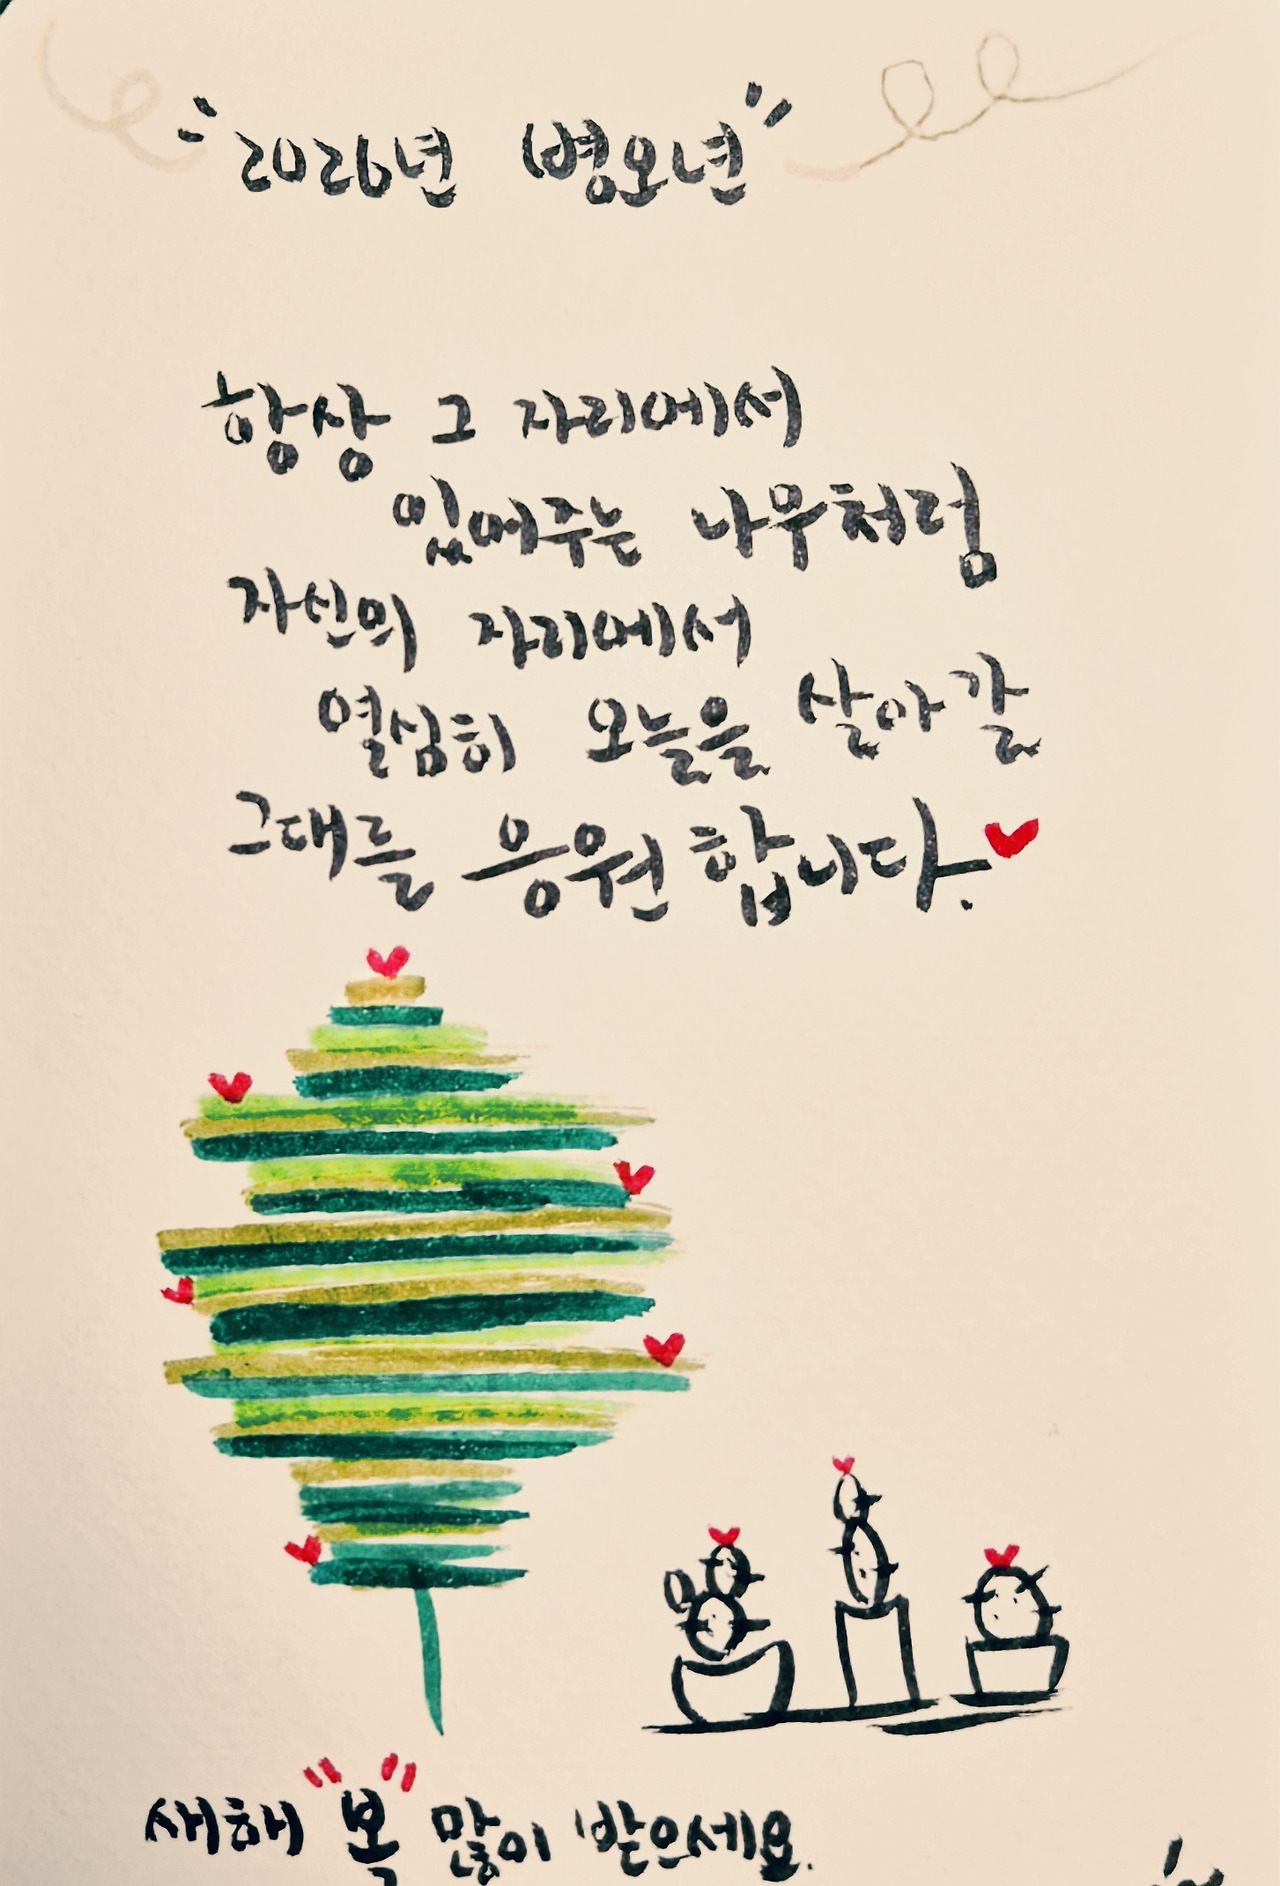 "2026년 병오년"
항상 그 자리에서
있어주는 나무처럼
자신의 자리에서
열심히 오늘을 살아갈
그대를 응원합니다.
새해 "복" 많이 받으세요.